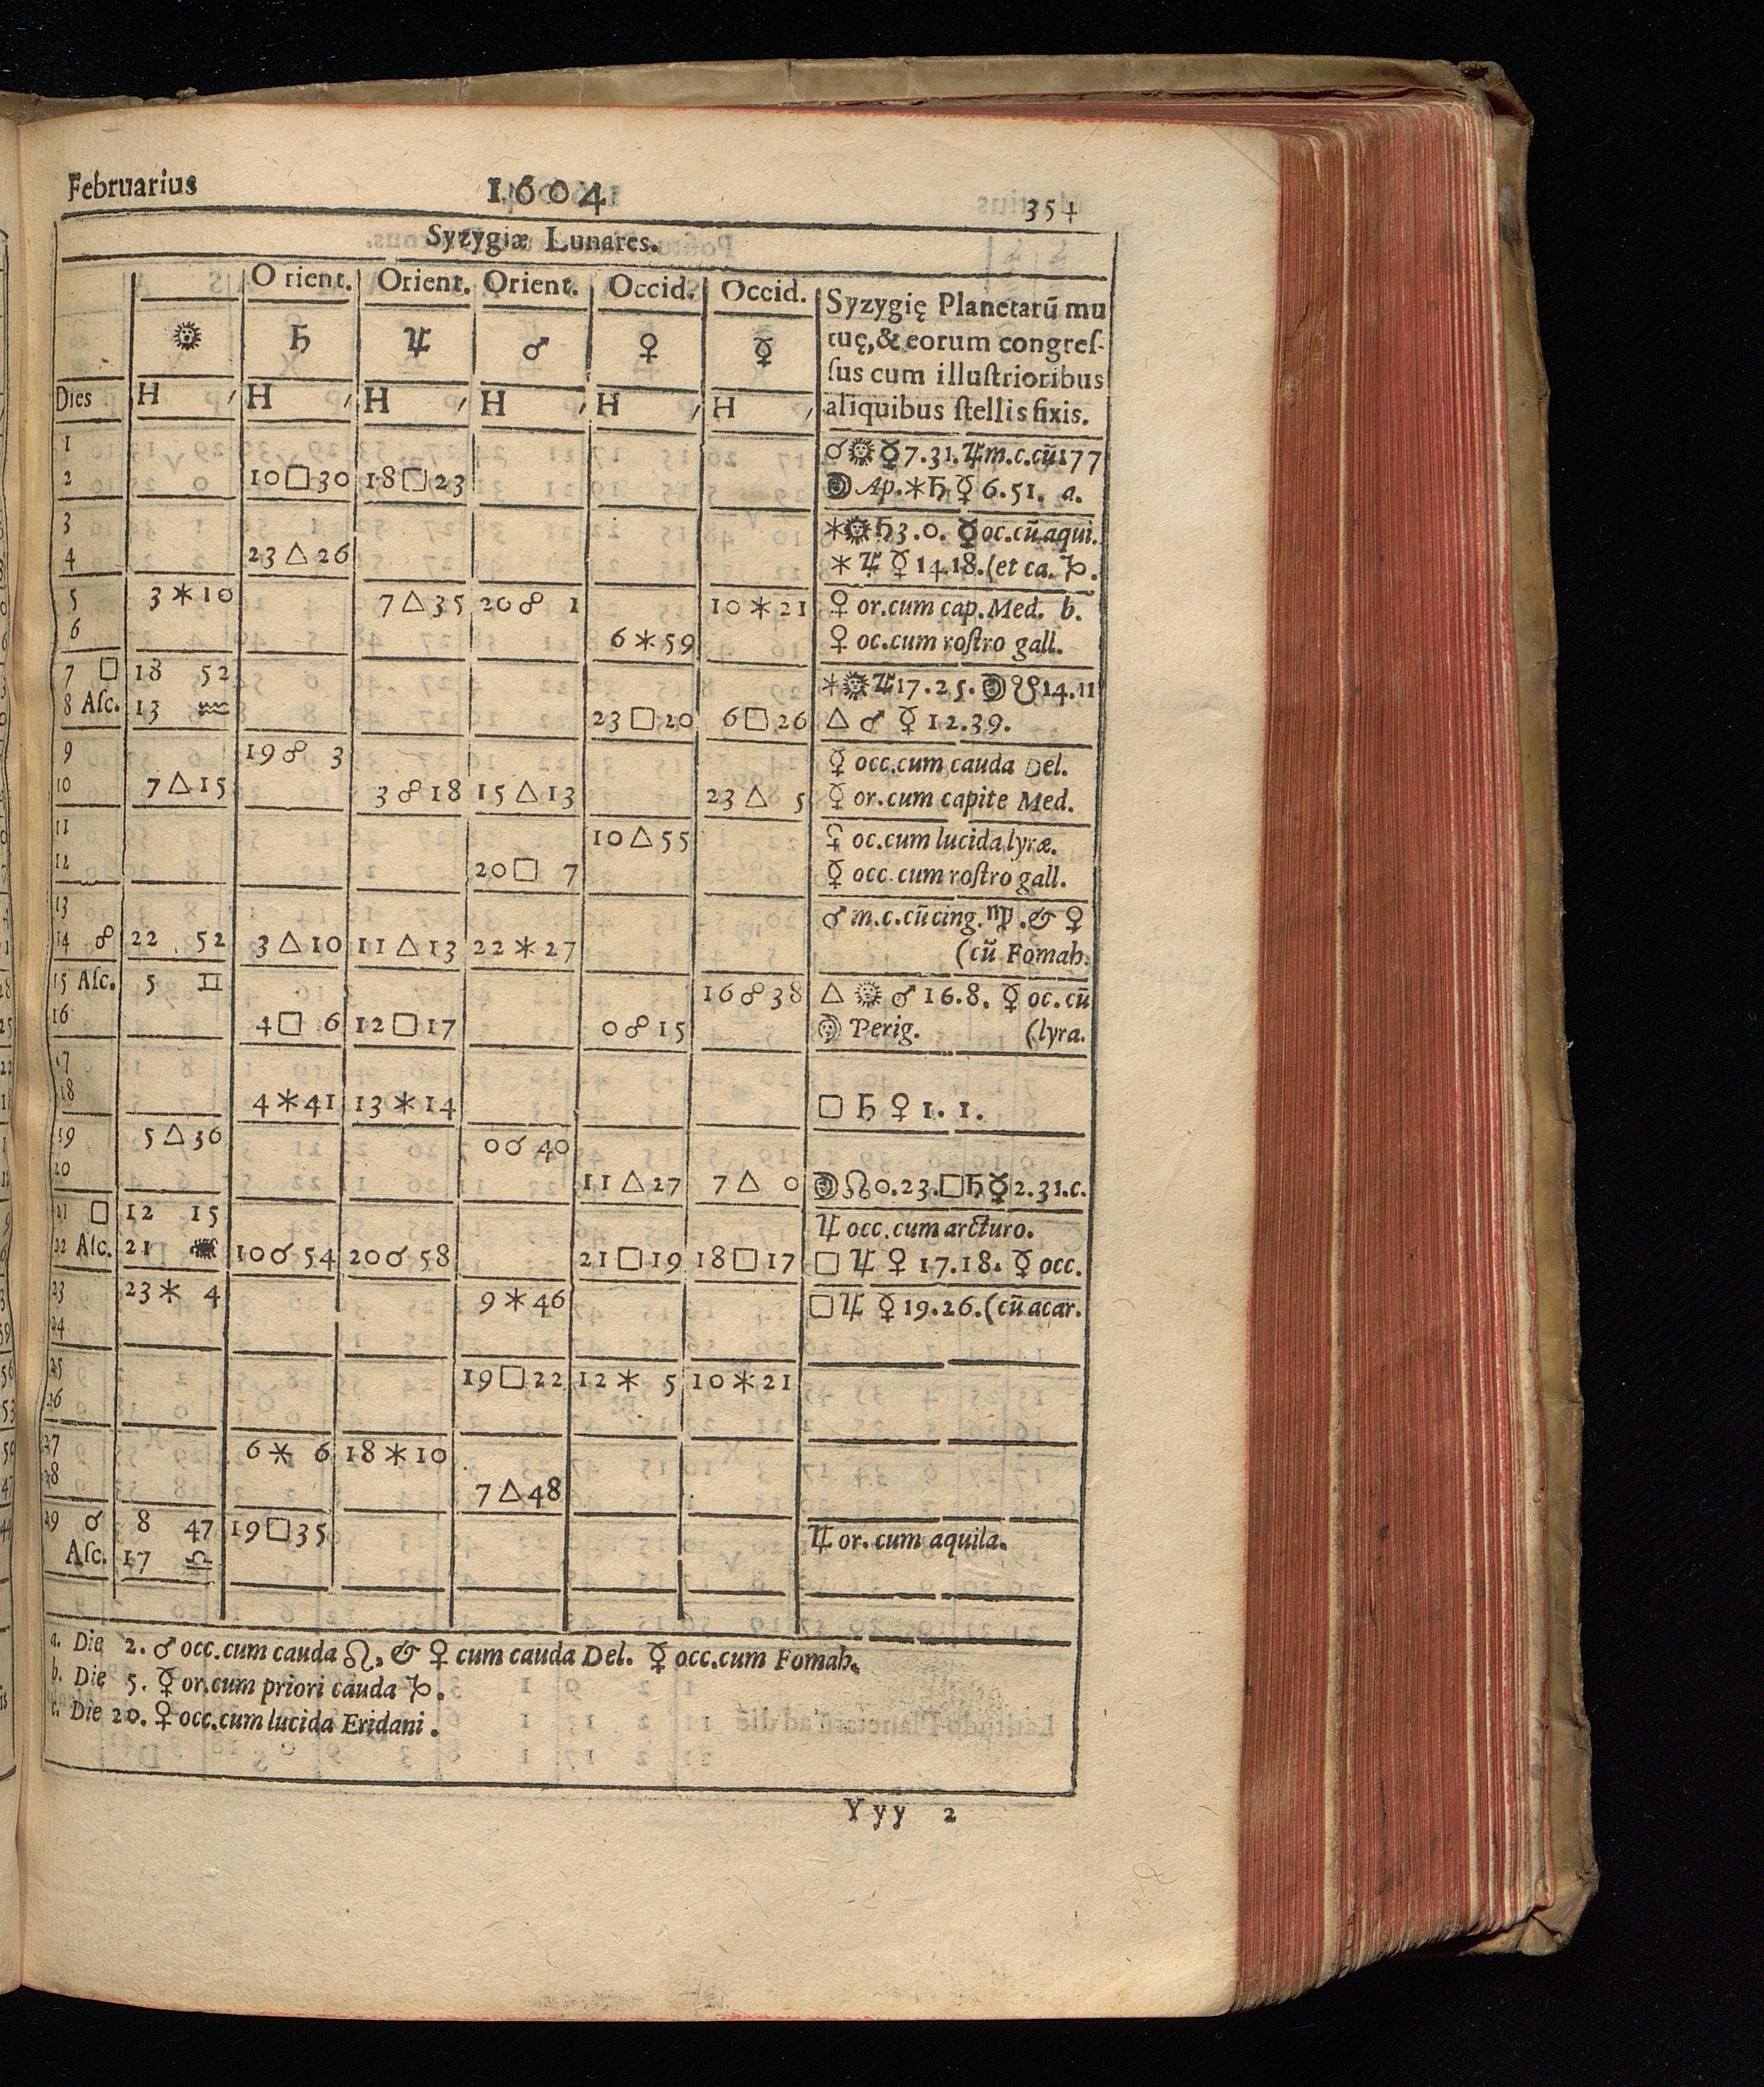 Februarius 1604 354
Syzygiæ Lunares.
Orient. Orient. Orient. Occid. Occid. Syzygię Planetarū mu
☉ ♄ ♃ ♂ ♀ ☿ tuę,& eorum congreſ-
ſus cum illuſtrioribus
Dies H ′ H ′ H ′ H ′ H ′ H ′ aliquibus ſtellis fixis.
1 ☌☉☿7.31.♃m.c.cū177
2 10□30 18□23 ☽ Ap.⚹♄☿6.51. a.
3 ⚹☉♄3.0. ☿oc.cū aqui.
4 23△26 ⚹♃☿14.18.(et ca.♑.
5 3⚹10 7△35 20☍ 1 10⚹21 ♀ or.cum cap.Med. b.
6 6⚹59 ♀ oc.cum roſtro gall.
7 □ 18 52 ⚹☉♃17.25.☽☋14.11
8 Aſc. 13 ♒ 23□20 6□26 △ ♂ ☿ 12.39.
9 19☍ 3 ☿ occ.cum cauda Del.
10 7△15 3☍18 15△13 23△ 5 ☿ or.cum capite Med.
11 10△55 ♀ oc.cum lucida lyræ.
12 20□ 7 ☿ occ.cum roſtro gall.
13 ♂ m.c.cū cing.♍.& ♀
14 ☍ 22 52 3△10 11△13 22⚹27 (cū Fomah.
15 Aſc. 5 ♊ 16☍38 △☉♂16.8. ☿ oc.cū
16 4□ 6 12□17 0☍15 ☽ Perig. (lyra.
17
18 4⚹41 13⚹14 □ ♄ ♀ 1. 1.
19 5△36 0☌40
20 11△27 7△ 0 ☽☊0.23.□♄☿2.31.c.
21 □ 12 15 ♃ occ.cum arcturo.
22 Aſc. 21 10☌54 20☌58 21□19 18□17 □ ♃ ♀ 17.18. ☿ occ.
23 23⚹ 4 9⚹46 □♃ ☿19.26.(cū acar.
24
25 19□22 12⚹ 5 10⚹21
26
27 6⚹ 6 18⚹10
28 7△48
29 ☌ 8 47 19□35 ♃ or.cum aquila.
Aſc. 17 ♎
a. Die 2. ♂ occ.cum cauda ♌, & ♀ cum cauda Del. ☿ occ.cum Fomah.
b. Die 5. ☿ or.cum priori cauda ♑.
c. Die 20. ♀ occ.cum lucida Eridani.
Yyy 2